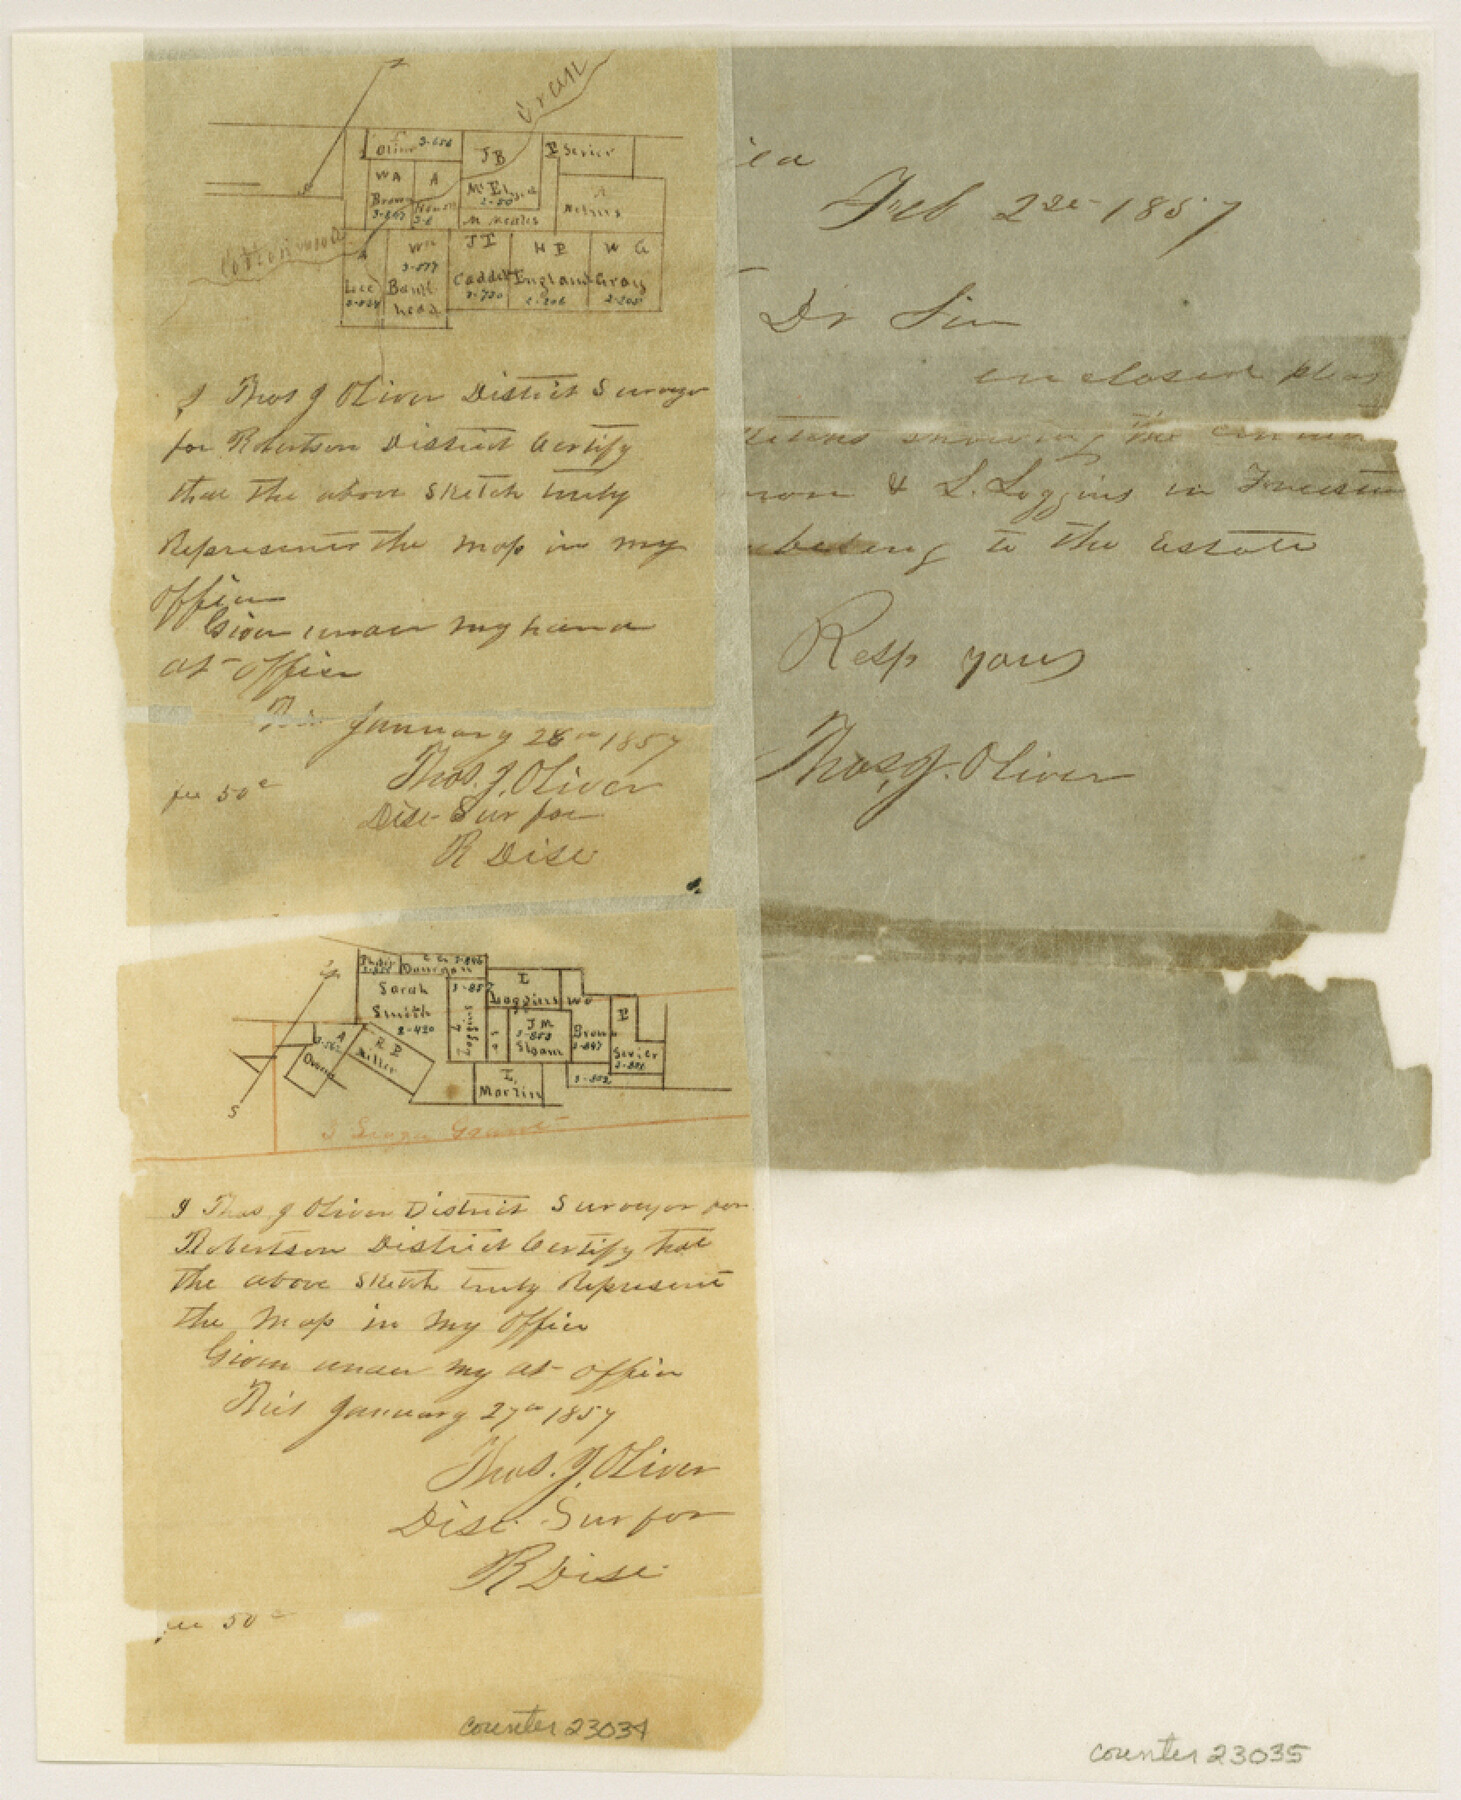 N
Cran
T
Oliver 3-656
J B
McEl
2-50
E Sevier
W A
Brown
3-847
A
M Meales
A
Cottonwood
Lee
W H
3-577
Bank
head
J T
Cadde
3-730
H P
England
2-206
W G
Gray
2-205
I Thos J Oliver District Surveyor
for Robertson District Certify
that the above sketch truly
Represents the map in my
office
Given under my hand
at office
This January 26th 1857
Thos. J. Oliver
Dist Sur for
R Dist
fee 50c
Feb 22d 1857
Dr Sir
enclosed pleas
showing the
& L. Loggins in Freestone
belong to the Estate
Resp yours
Thos. J. Oliver
N
S
Sarah
Smith
2-420
3-857
L
Loggins
L
Loggins
W A
Brown
3-847
J M
3-853
Sloam
E
Sevier
3-852
A
Owens
R P
Miller
L.
Martin
Grant
I Thos J Oliver District Surveyor for
Robertson District Certify that
the above sketch truly Represent
the map in my office
Given under my at office
This January 27th 1857
Thos. J. Oliver
Dist. Sur for
R Dist
fee 50c
counter 23034
counter 23035